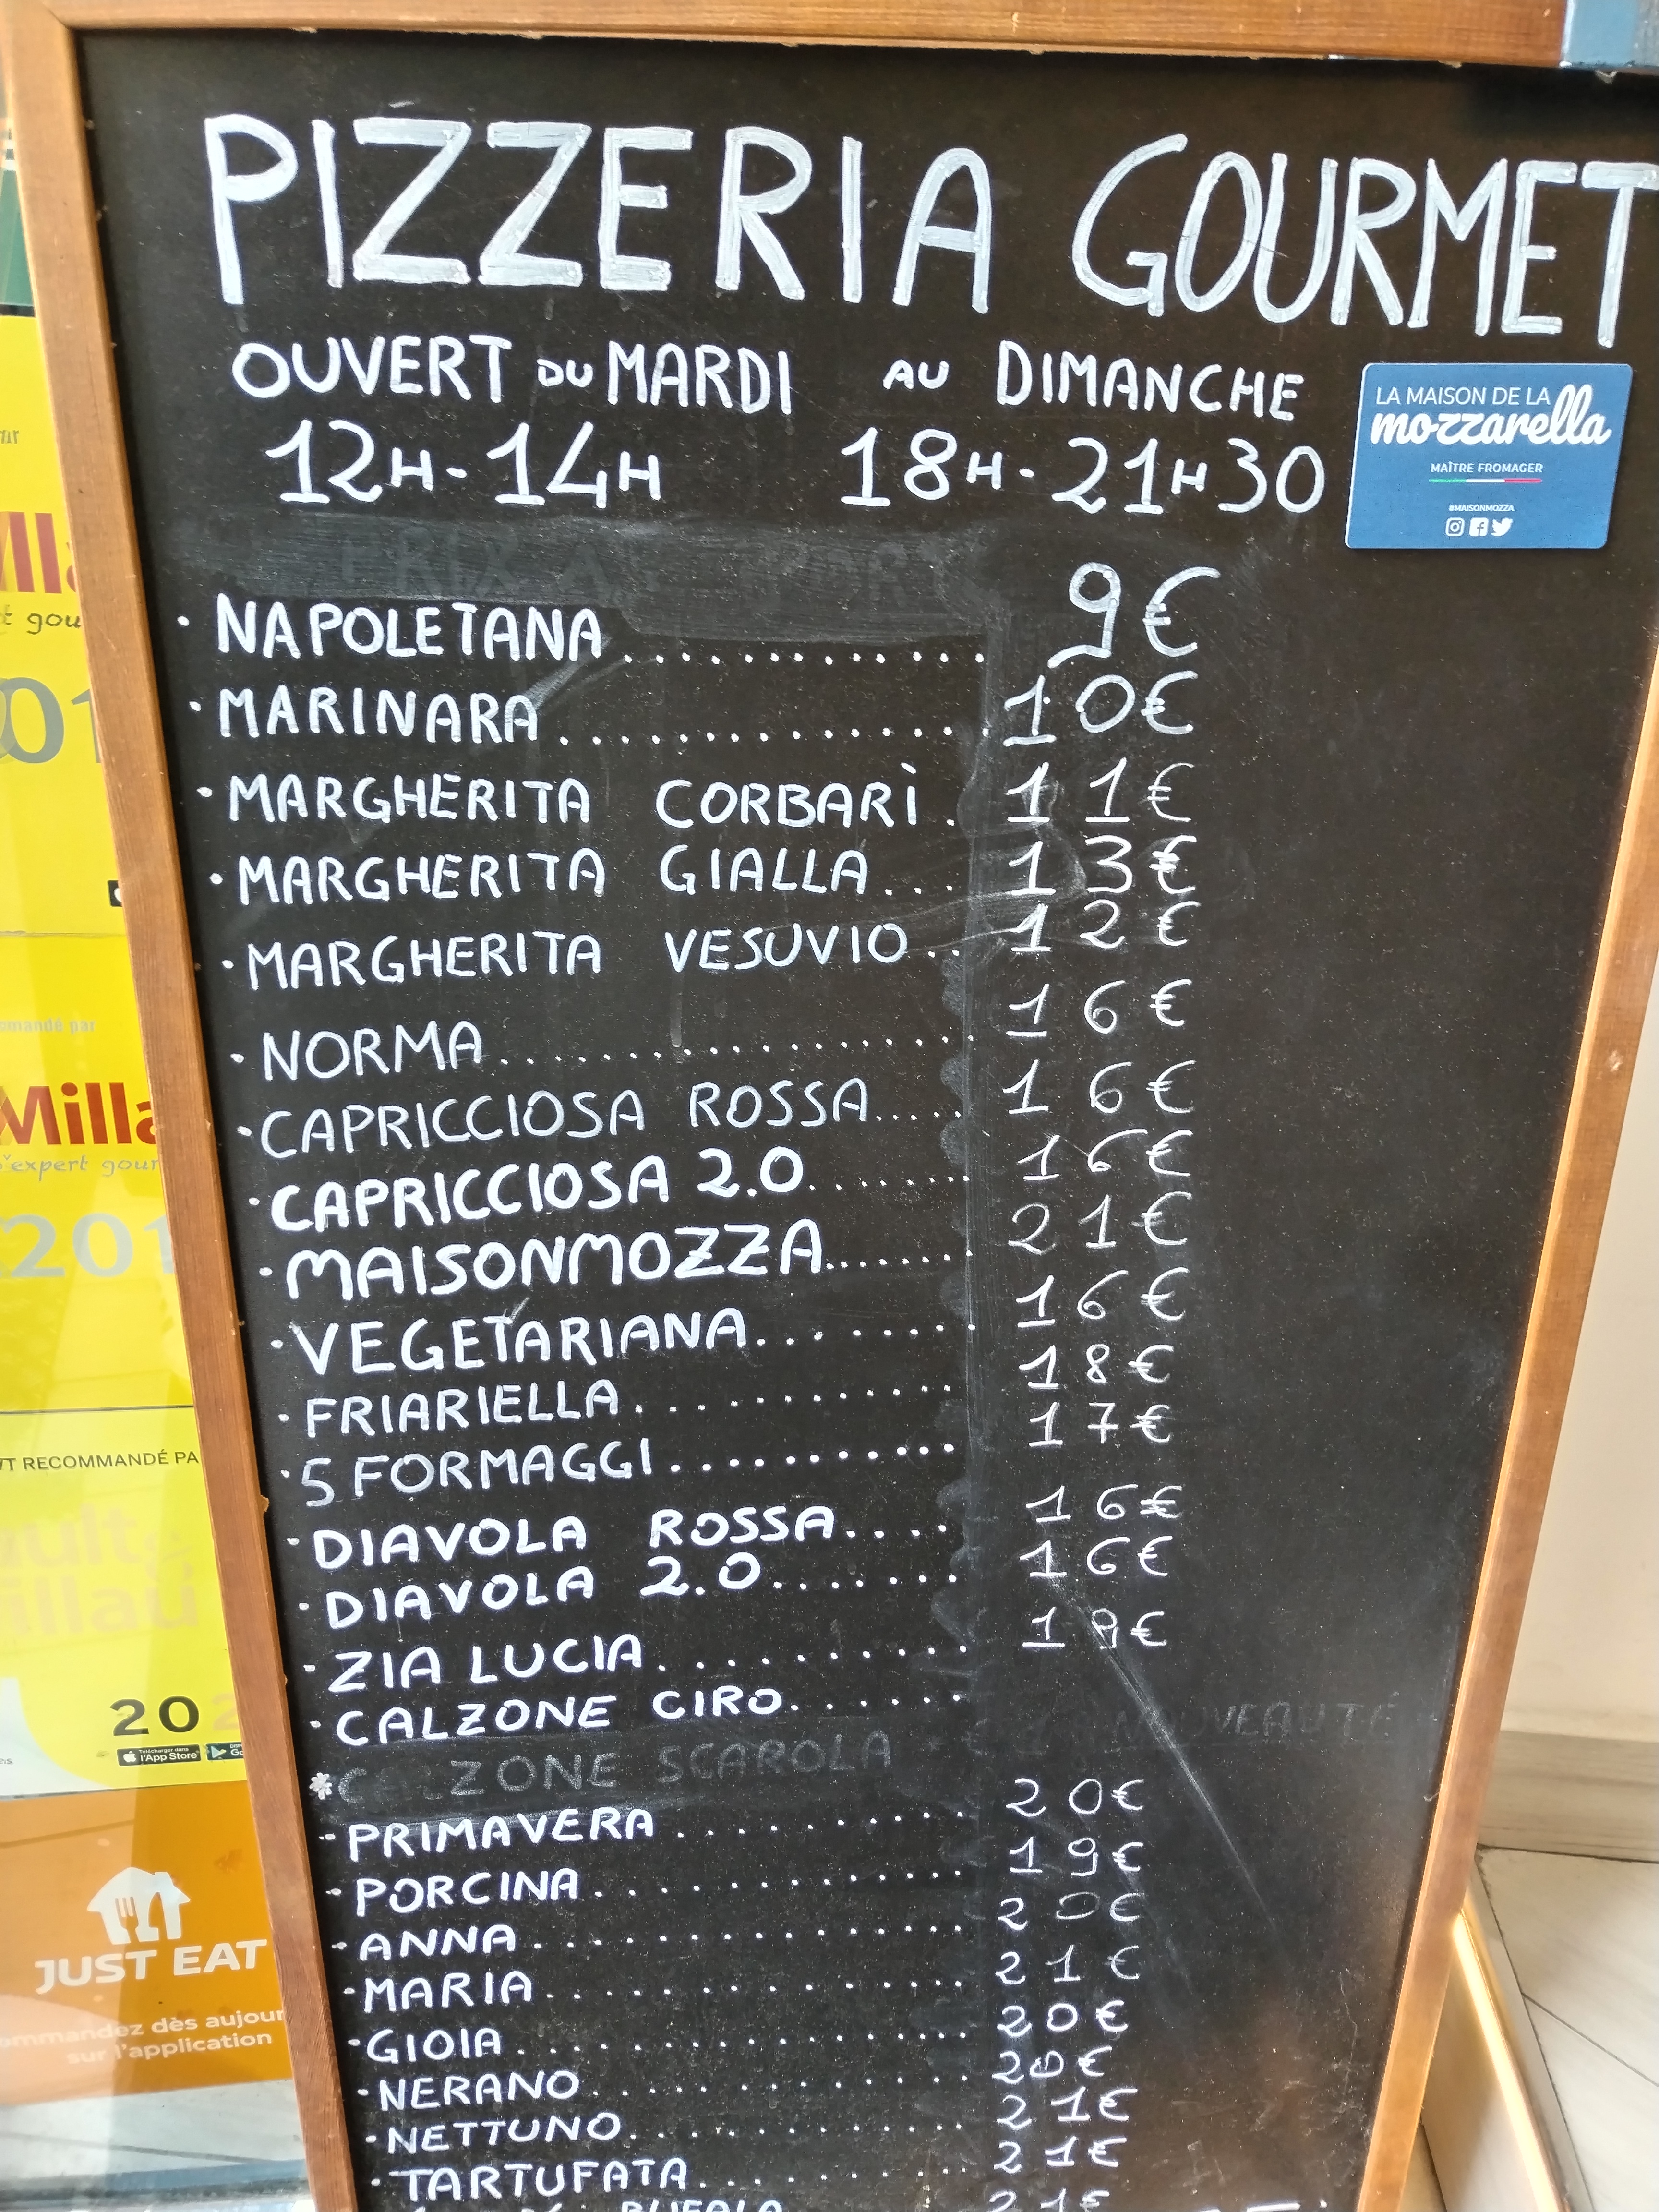 PIZZERIA GOURMET
OUVERT DU MARDI AU DIMANCHE
12H-14H 18H-21H30
LA MAISON DE LA
mozzarella
MAÎTRE FROMAGER
#MAISONMOZZA
· NAPOLETANA............. 9€
· MARINARA............... 10€
· MARGHERITA CORBARÌ. 11€
· MARGHERITA GIALLA... 13€
· MARGHERITA VESUVIO.. 12€
· NORMA................... 16€
· CAPRICCIOSA ROSSA..... 16€
· CAPRICCIOSA 2.0....... 16€
· MAISONMOZZA....... 21€
· VEGETARIANA....... 16€
· FRIARIELLA.......... 18€
· 5 FORMAGGI.......... 17€
· DIAVOLA ROSSA.... 16€
· DIAVOLA 2.0....... 16€
· ZIA LUCIA........... 19€
· CALZONE CIRO......
NOUVEAUTÉ
*CALZONE SCAROLA
- PRIMAVERA.......... 20€
- PORCINA............. 19€
- ANNA................ 20€
- MARIA............... 21€
- GIOIA................ 20€
- NERANO............. 20€
- NETTUNO............ 21€
- TARTUFATA.......... 21€
BUFALA 21€
gou
201
mandé par
Milla
expert gour
201
T RECOMMANDÉ PA
ault&
illau
20
Télécharger dans
l'App Store
JUST EAT
ommandez dès aujour
sur l'application